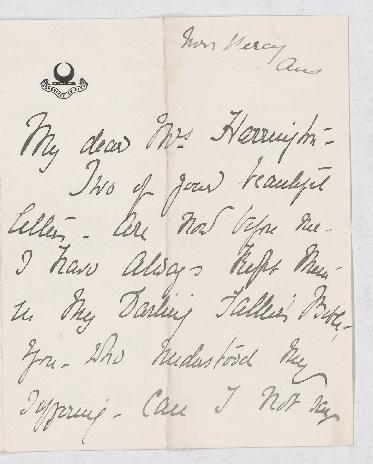 Mrs Percy
Ans
My dear Mrs Harrington -
Two of your beautiful
letters - are now before me -
I have always kept them
in my Darling Father's Bible,
You - who understood my
suffering - Can I not say